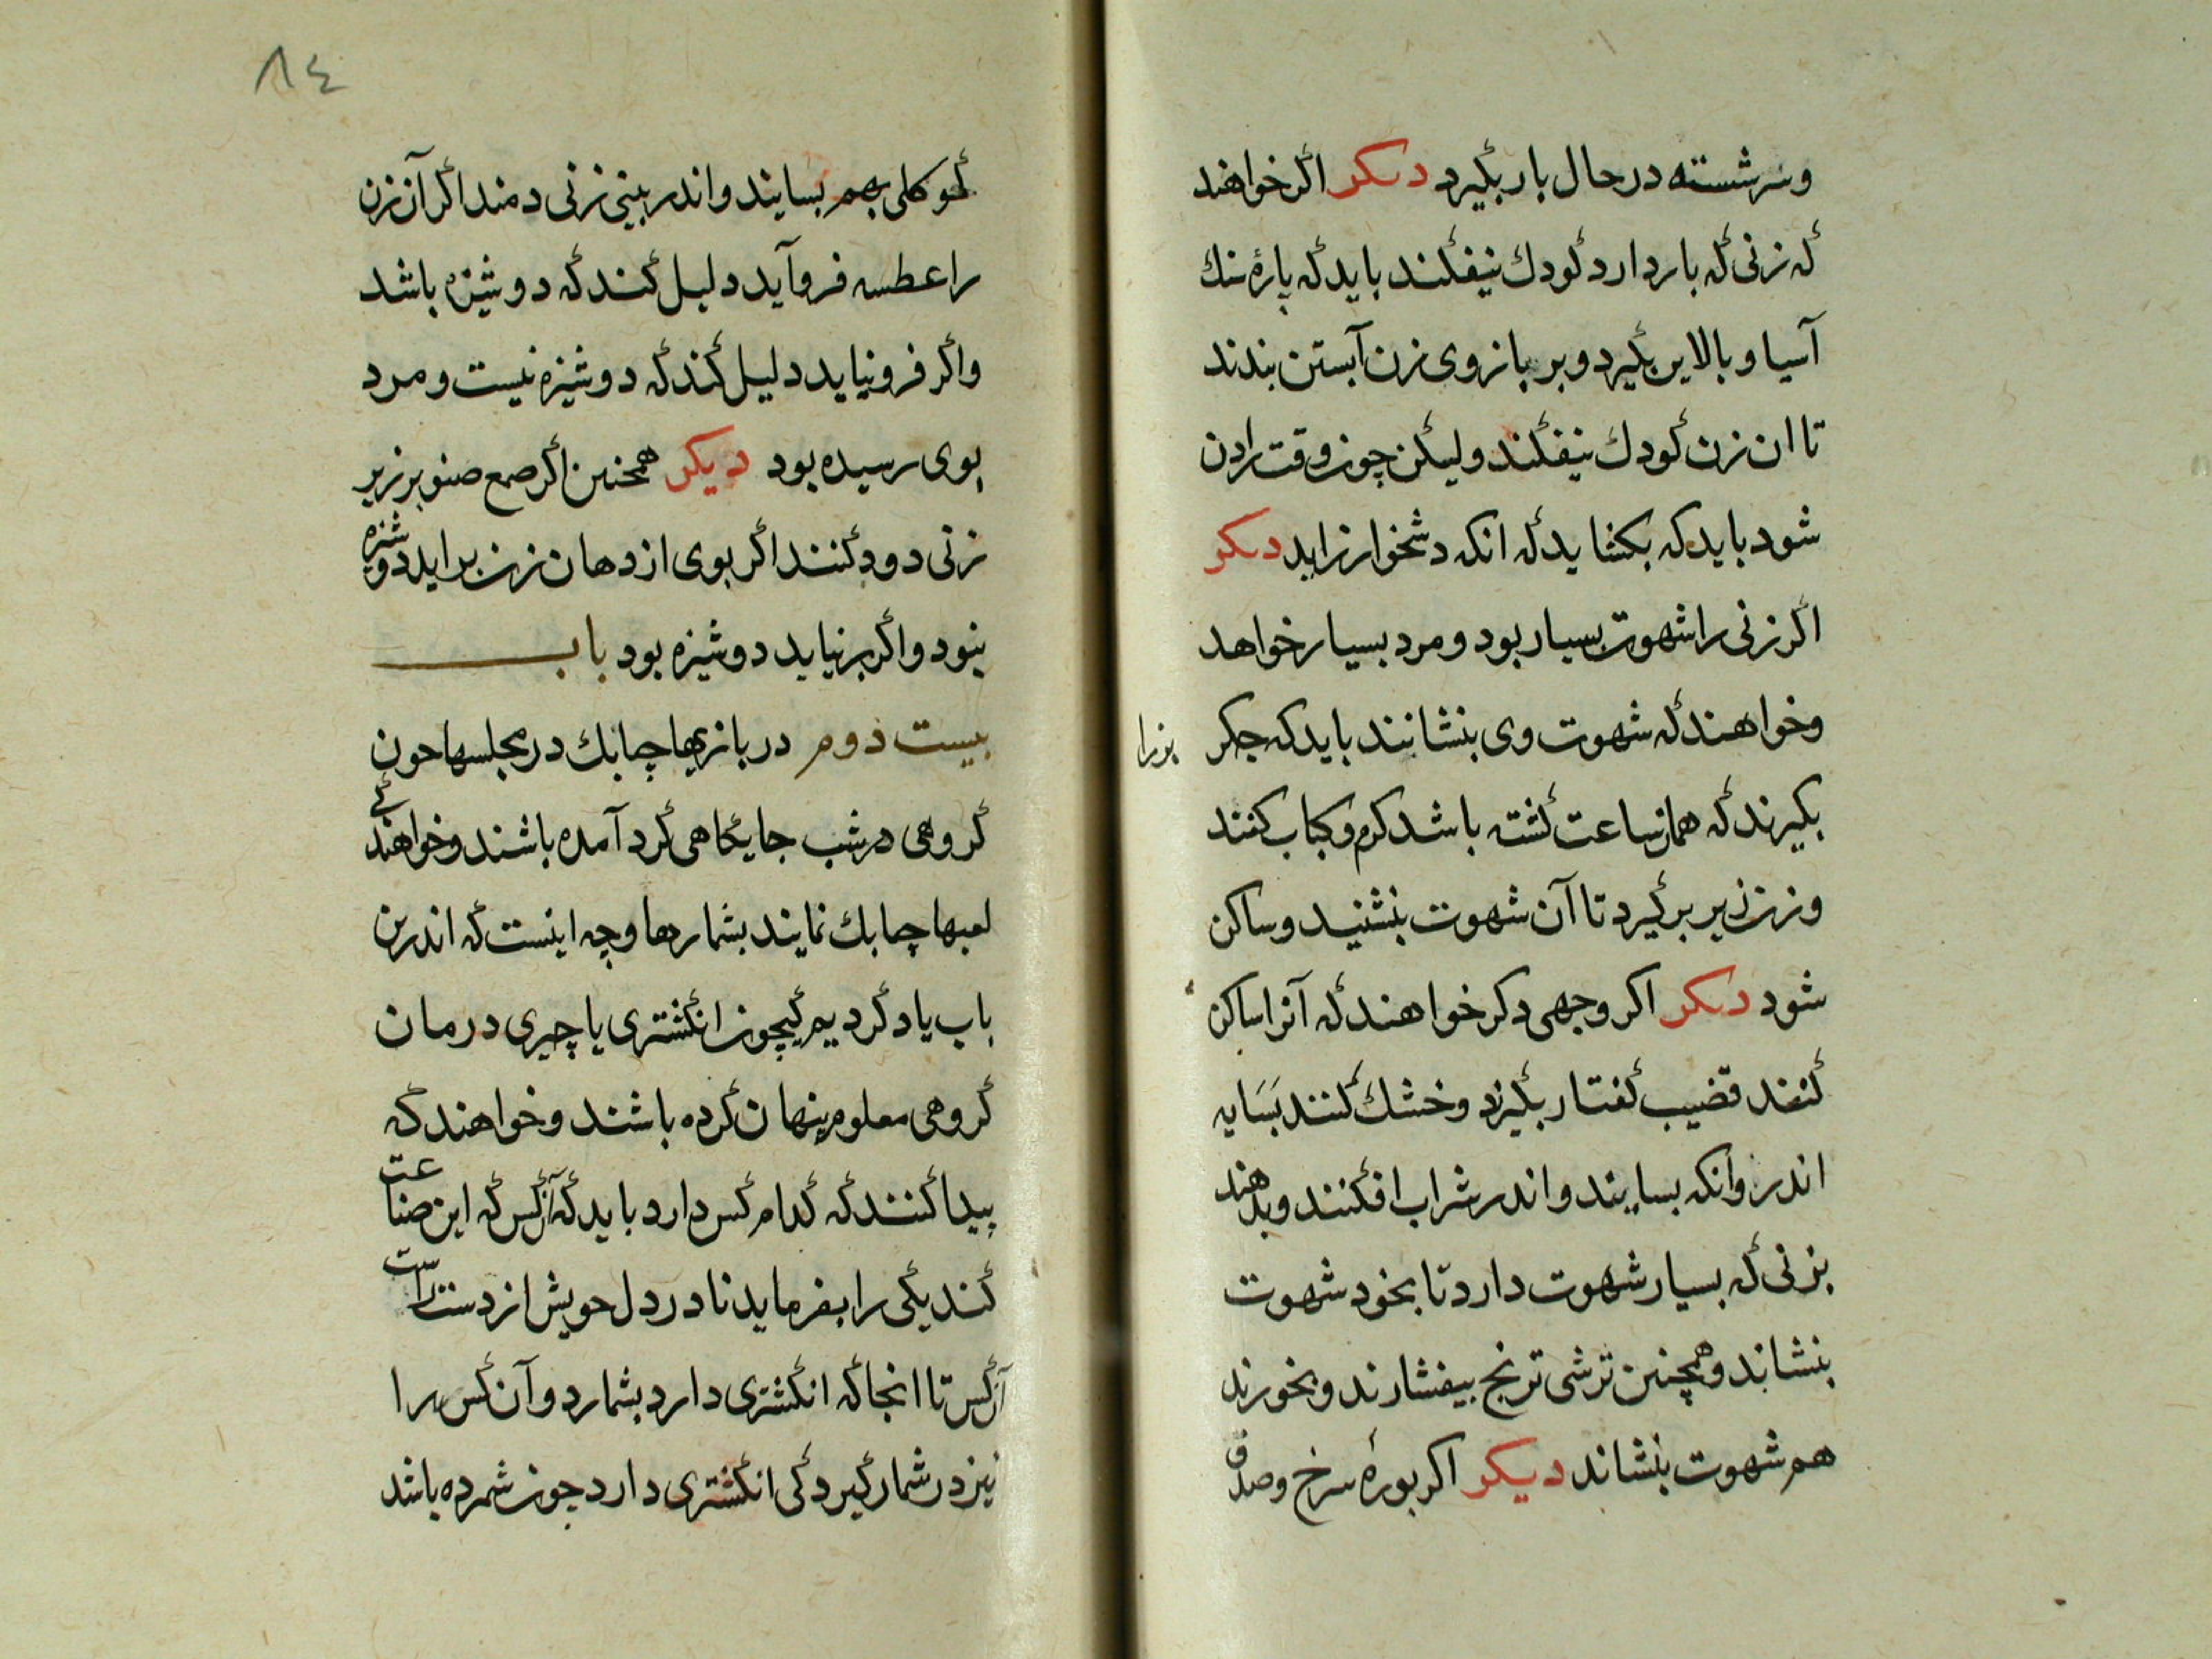 وسرشسته درحال بار بگیرد دیگر اگر خواهند
که زنی که بار دارد کودك نیفکند باید که پارهٔ سنك
آسیا و بالاین بگیرد و بر بازوی زن آبستن بندند
تا ان زن کودك نیفکند ولیکن چون وقت زادن
شود باید که بکشاید که انکه دشخوار زاید دیکر
اکر زنی را شهوت بسیار بود و مرد بسیار خواهد
وخواهند که شهوت وی بنشانند باید که جکر بزرا
بکیرند که همان ساعت کشته باشد کرم وکباب کنند
وزن زیر برکیرد تا آن شهوت بنشیند وساکن
شود دیکر اکر وجهی دکر خواهند که آنرا ساکن
کنند قضیب کفتار بکیرند وخشك کنند بسایه
اندر وانکه بسایند واندر شراب افکنند وبدهند
بزنی که بسیار شهوت دارد تا بخود شهوت
بنشاند وهمچنین ترشی ترنج بیفشارند وبخورند
هم شهوت بنشاند دیکر اکر بورهٔ سرخ وصدف
٨٤
کوکلی بهم بسایند واندر بینی زنی دمند اکر آن زن
را عطسه فروآید دلیل کند که دوشیزه باشد
واکر فرونیاید دلیل کند که دوشیزه نیست ومرد
بوی رسیده بود دیکر همچنین اکر صمغ صنوبر زیر
زنی دود کنند اکر بوی از دهان زن براید دوشیزه
بنود واکر برنیاید دوشیزه بود باب
بیست دوم در بازیها چابك در مجلسها چون
کروهی در شب جایکاهی کرد آمده باشند وخواهند کی
لعبها چابك نمایند بشمارها وجه اینست که اندرین
باب یاد کردیم کیچون انکشتری یا چیزی درمان
کروهی معلوم پنهان کرده باشند وخواهند که
پیدا کنند که کدام کس دارد باید که آن کس که این صناعت
کند یکی را بفرماید تا در دل خویش از دست راست
آن کس تا انجا که انکشتری دارد بشمارد وآن کس را
نیز در شمار کیرد کی انکشتری دارد چون شمرده باشد